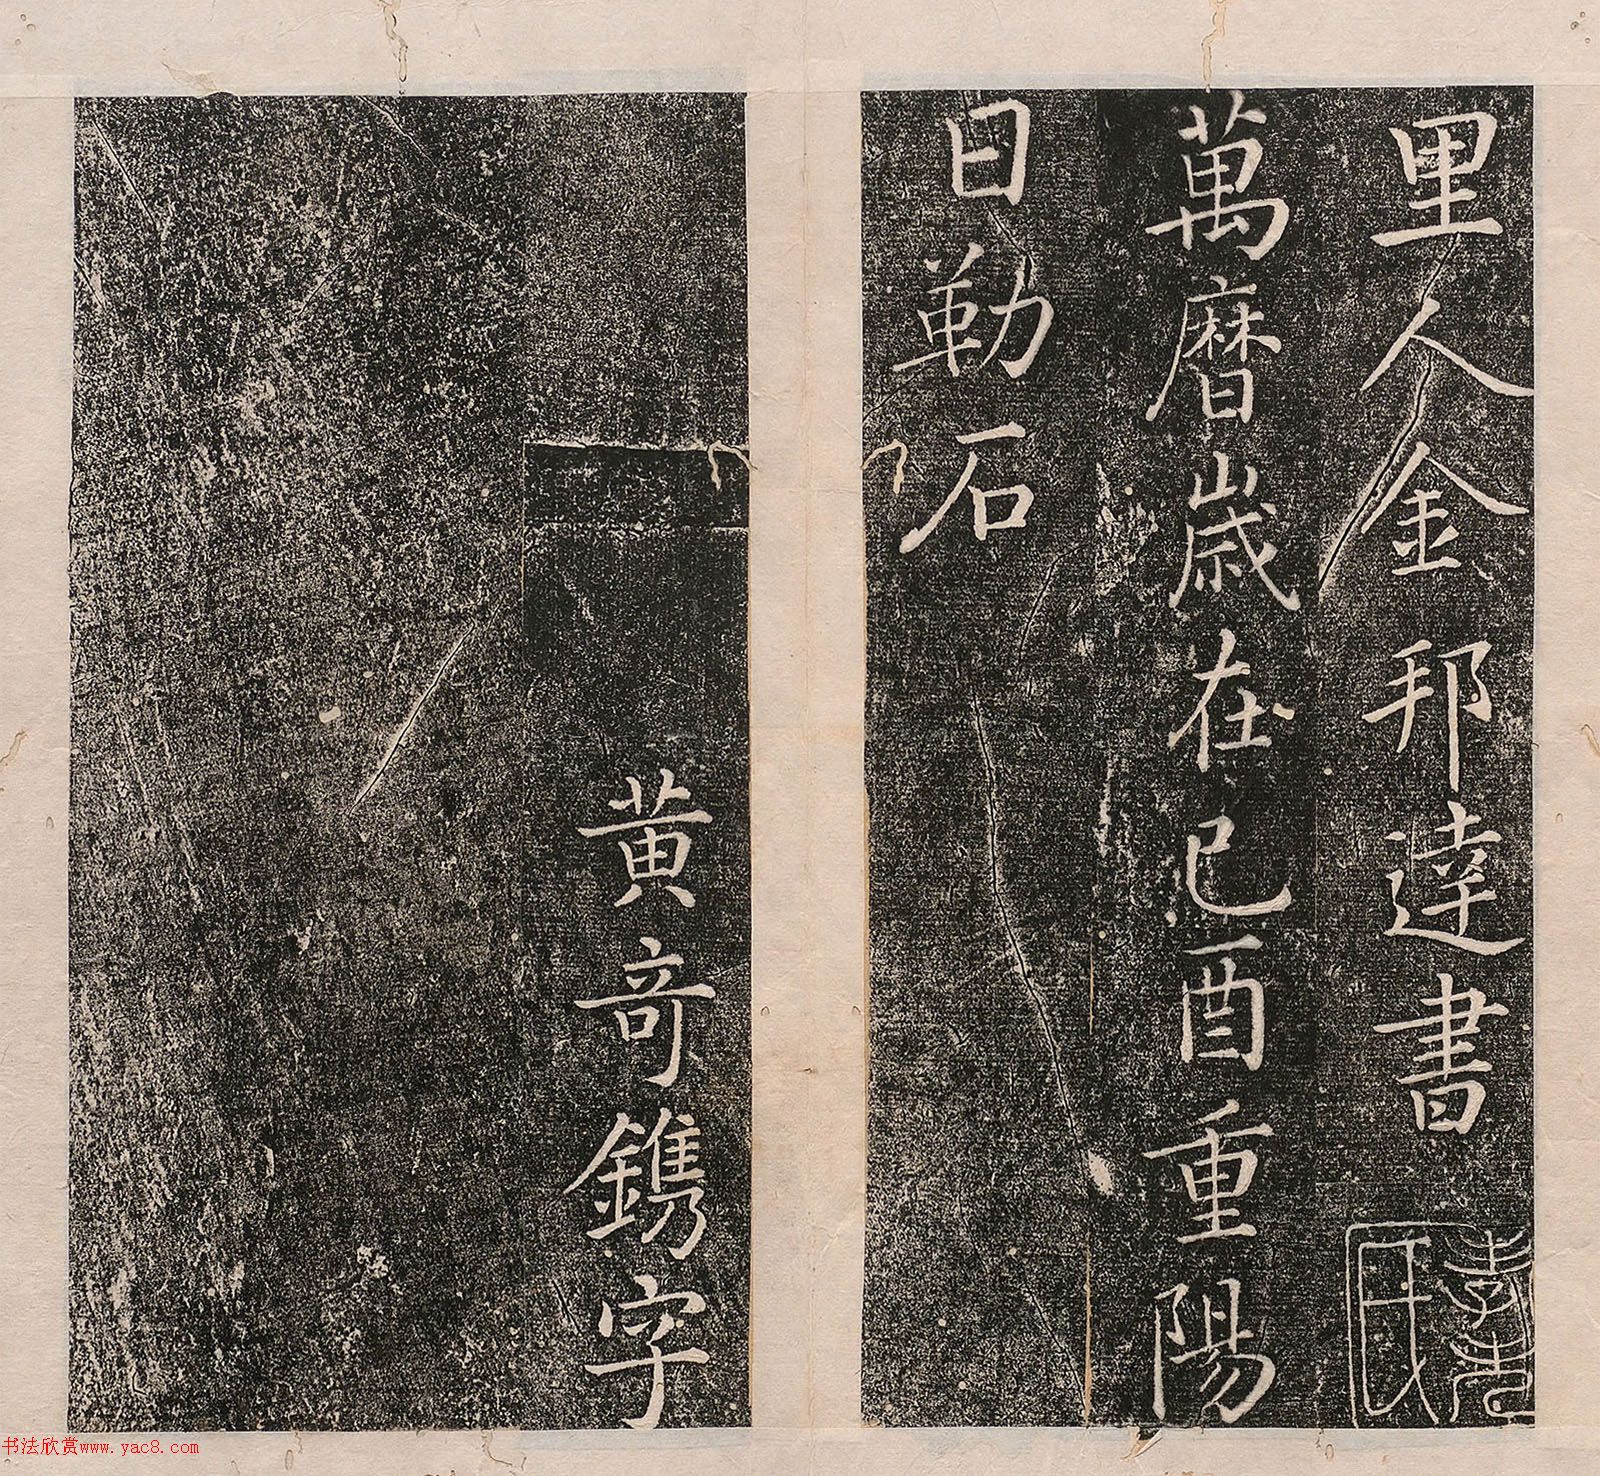 里人金邦達書
萬曆歲在己酉重陽
日勒石
黃奇鐫字
书法欣赏www.yac8.com